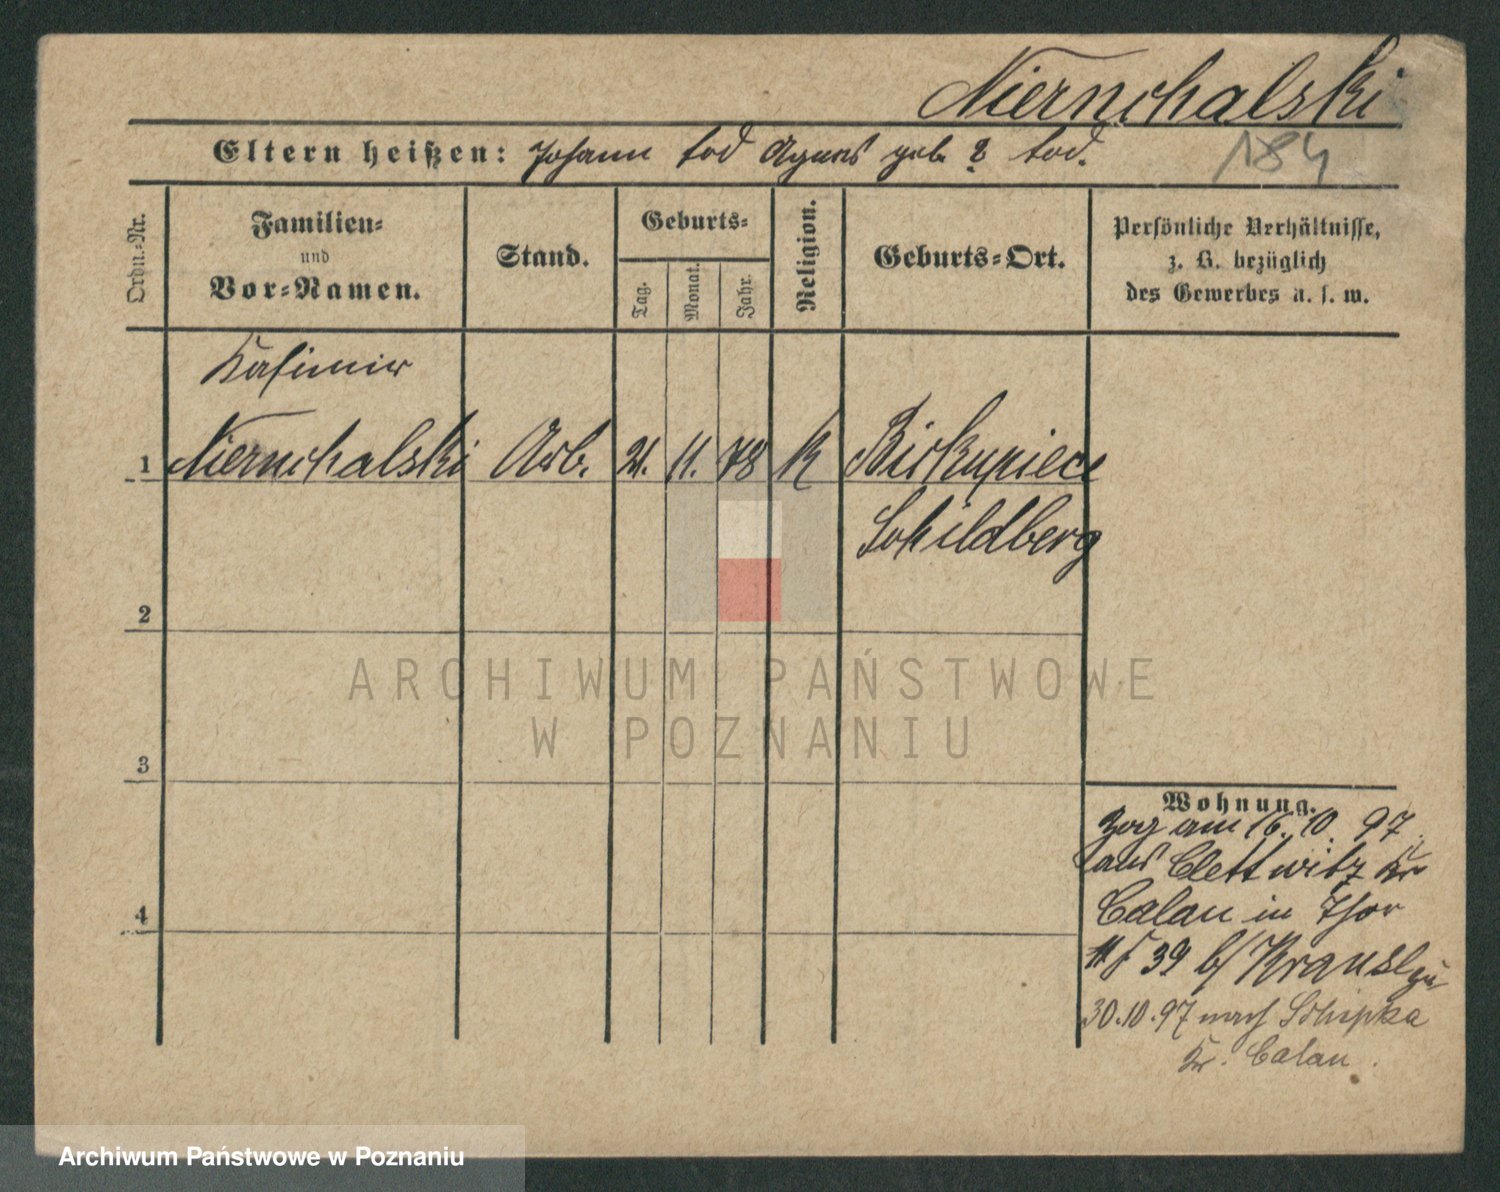 Niernchalski
184
Eltern heißen: Johann tod Agnes geb. ? tod.
Ordn.-Nr.
Familien-
und
Vor-Namen.
Stand.
Geburts-
Tag.
Monat.
Jahr.
Religion.
Geburts-Ort.
Persönliche Verhältnisse,
z. B. bezüglich
des Gewerbes u. s. w.
Kasimir
1 Niernchalski Arb. 21. 11. 78 K Biskupiece
Schildberg
2
ARCHIWUM PAŃSTWOWE
W POZNANIU
3
Wohnung.
Zog am 16. 10. 97.
aus Clettwitz Kr
Calau in Thor
39 b/
30.10.97 nach Schipka
Kr. Calau.
4
Archiwum Państwowe w Poznaniu